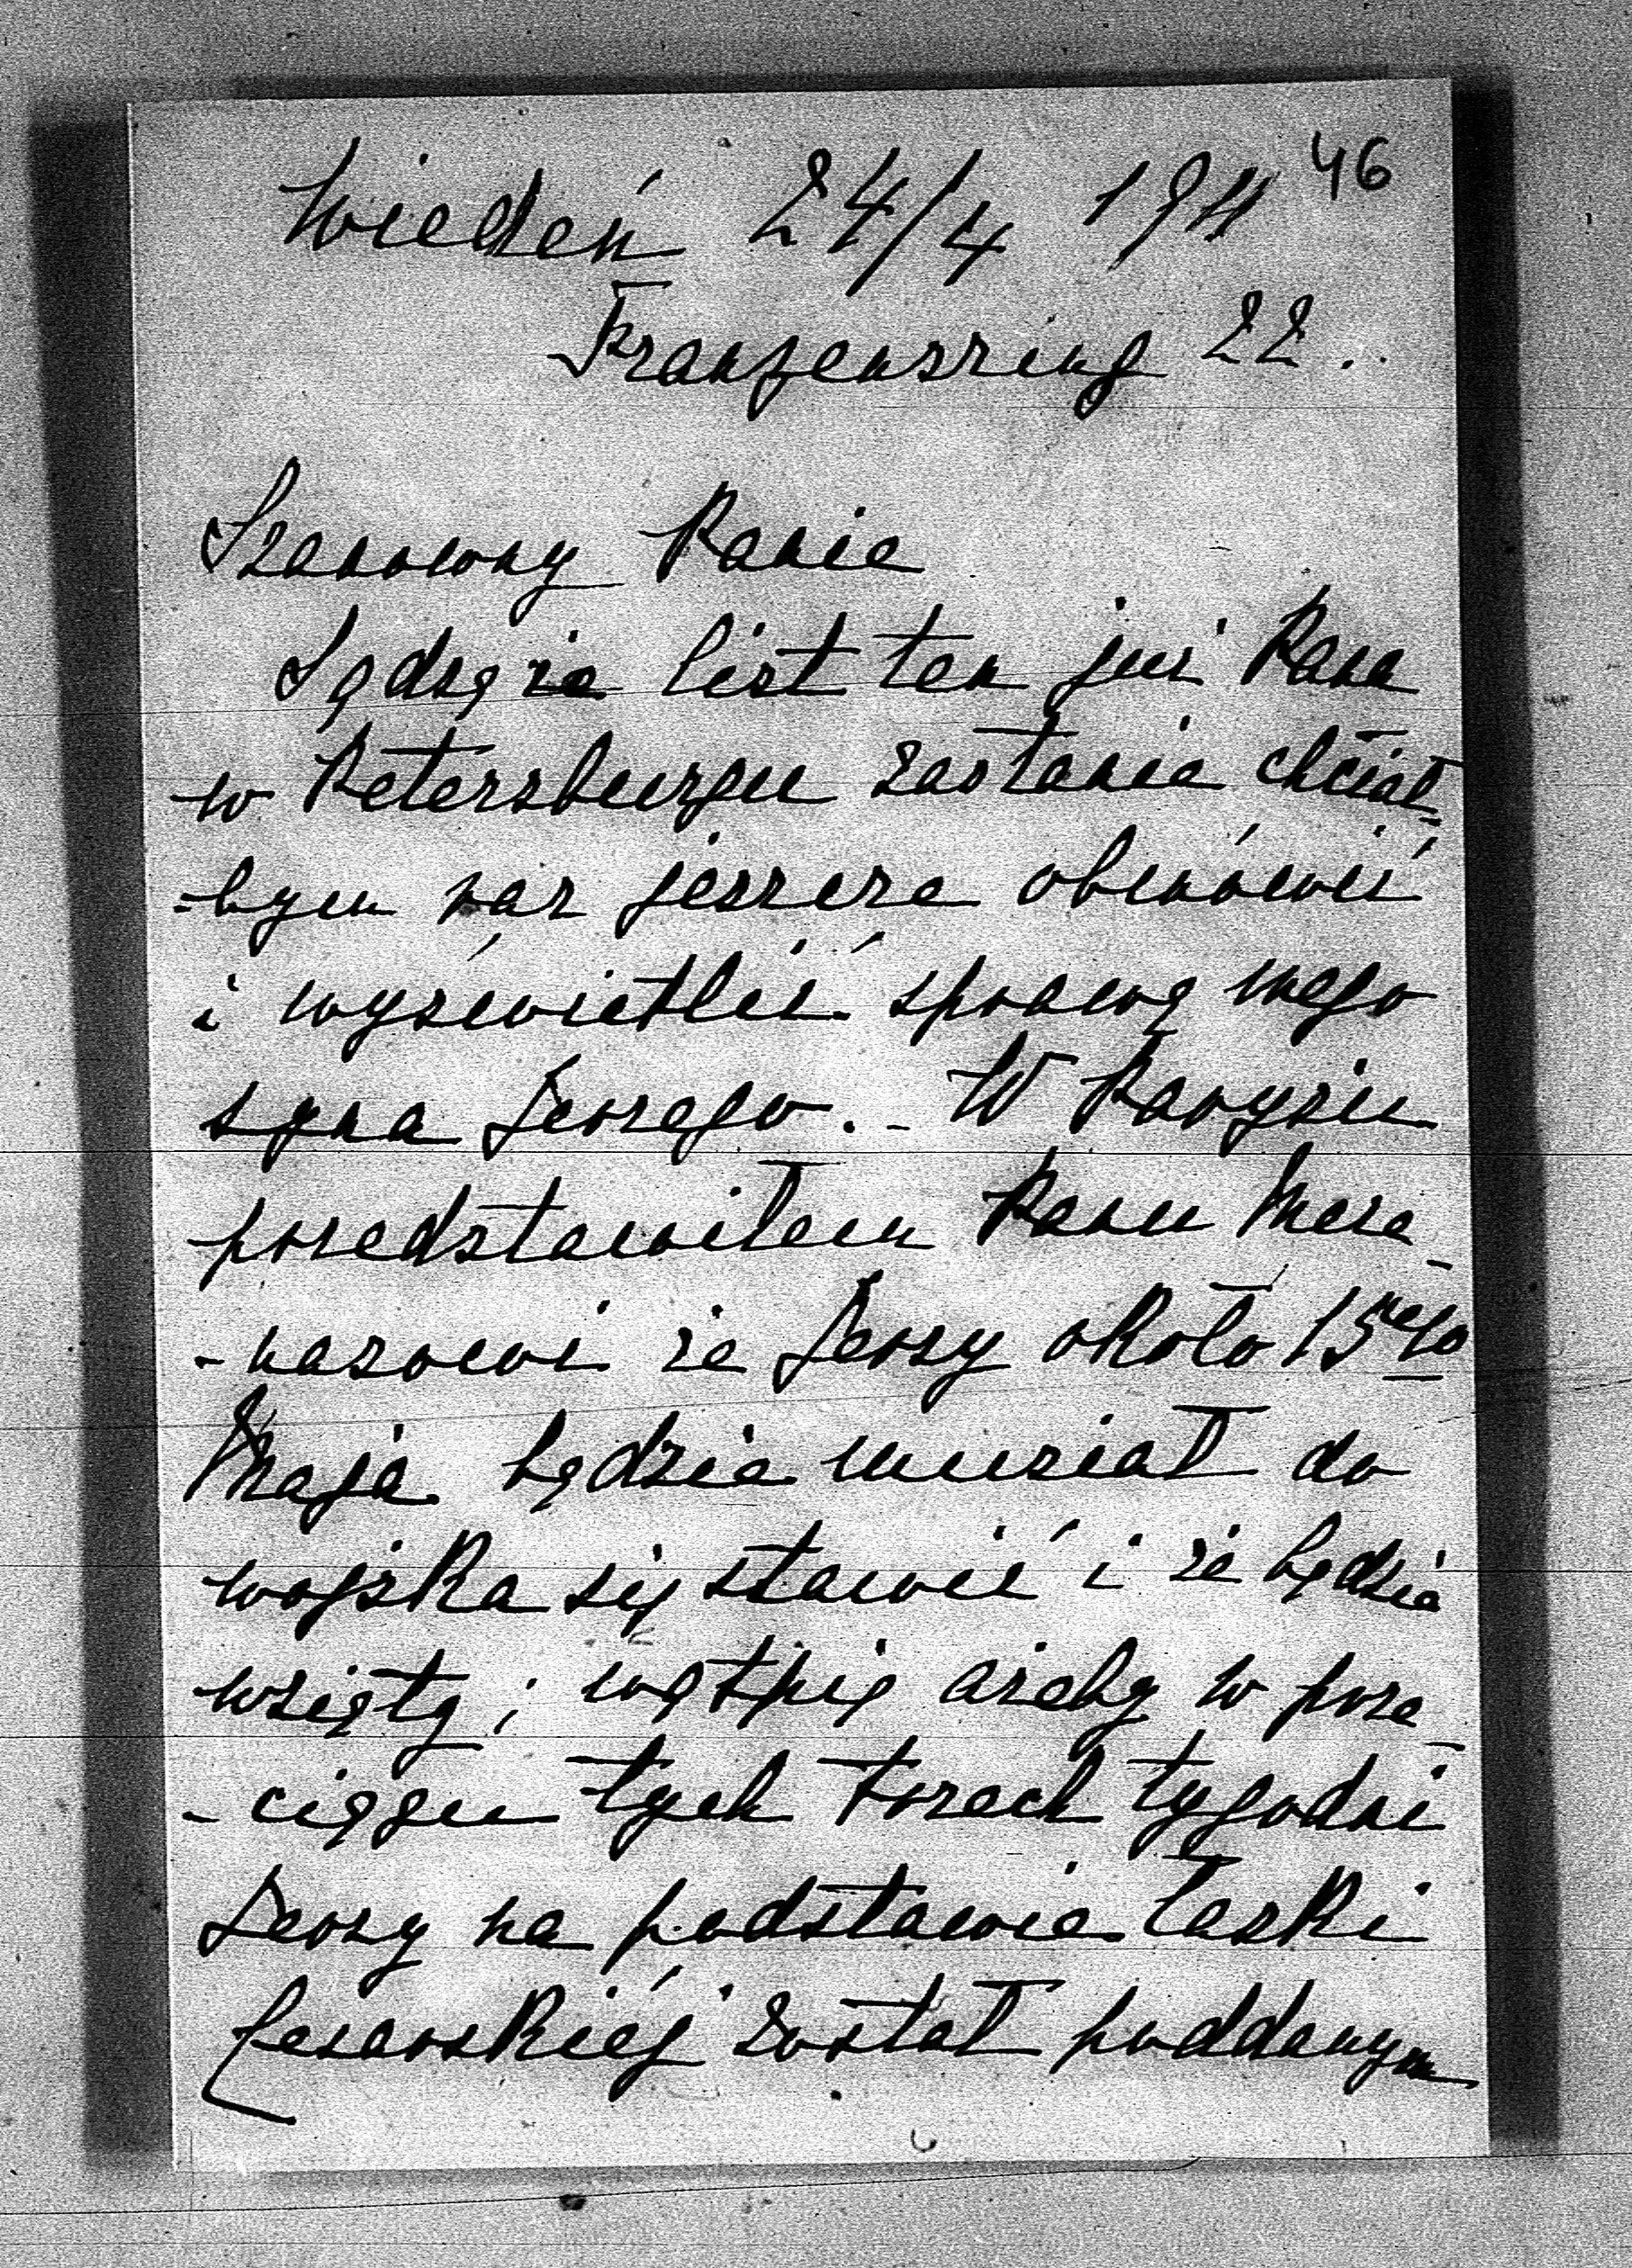 46
Wiedeń 24/4 1911
Franzensring 22.
Szanowny Panie
Sądzę że list ten już Pana
w Petersburgu zastanie chciał=
=bym raz jeszcze obmówić
i wyświetlić sprawę mego
syna Jerzego. - W Paryżu
przedstawiłem Panu Mere-
-nasowi że Jerzy około 15ego
Maja będzie musiał do
wojska się stawić i że będzie
wzięty; wątpię ażeby w prze-
-ciągu tych trzech tygodni
Jerzy na podstawie łaski
Cesarskiéj został poddanym